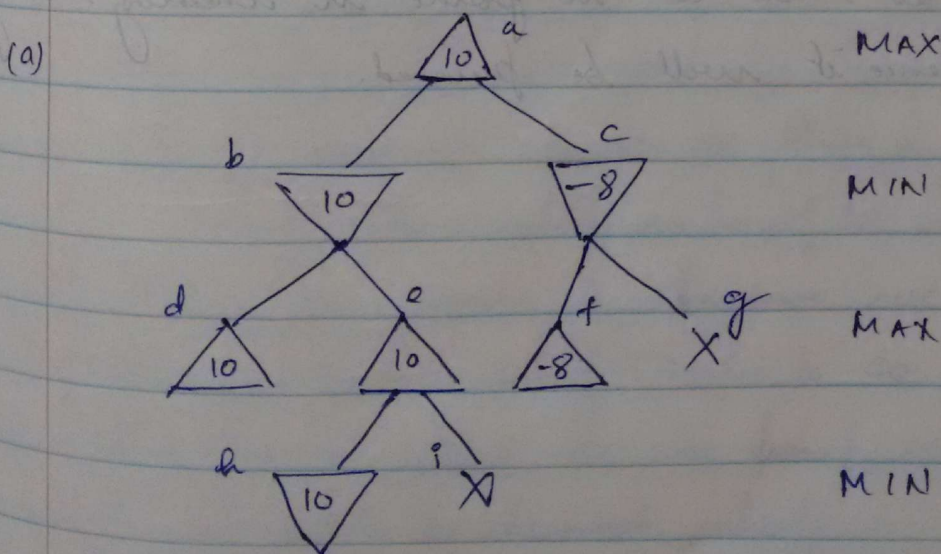 (a)
a
10
MAX
b
10
c
-8
MIN
d
10
e
10
f
-8
g
X
MAX
h
10
i
X
MIN